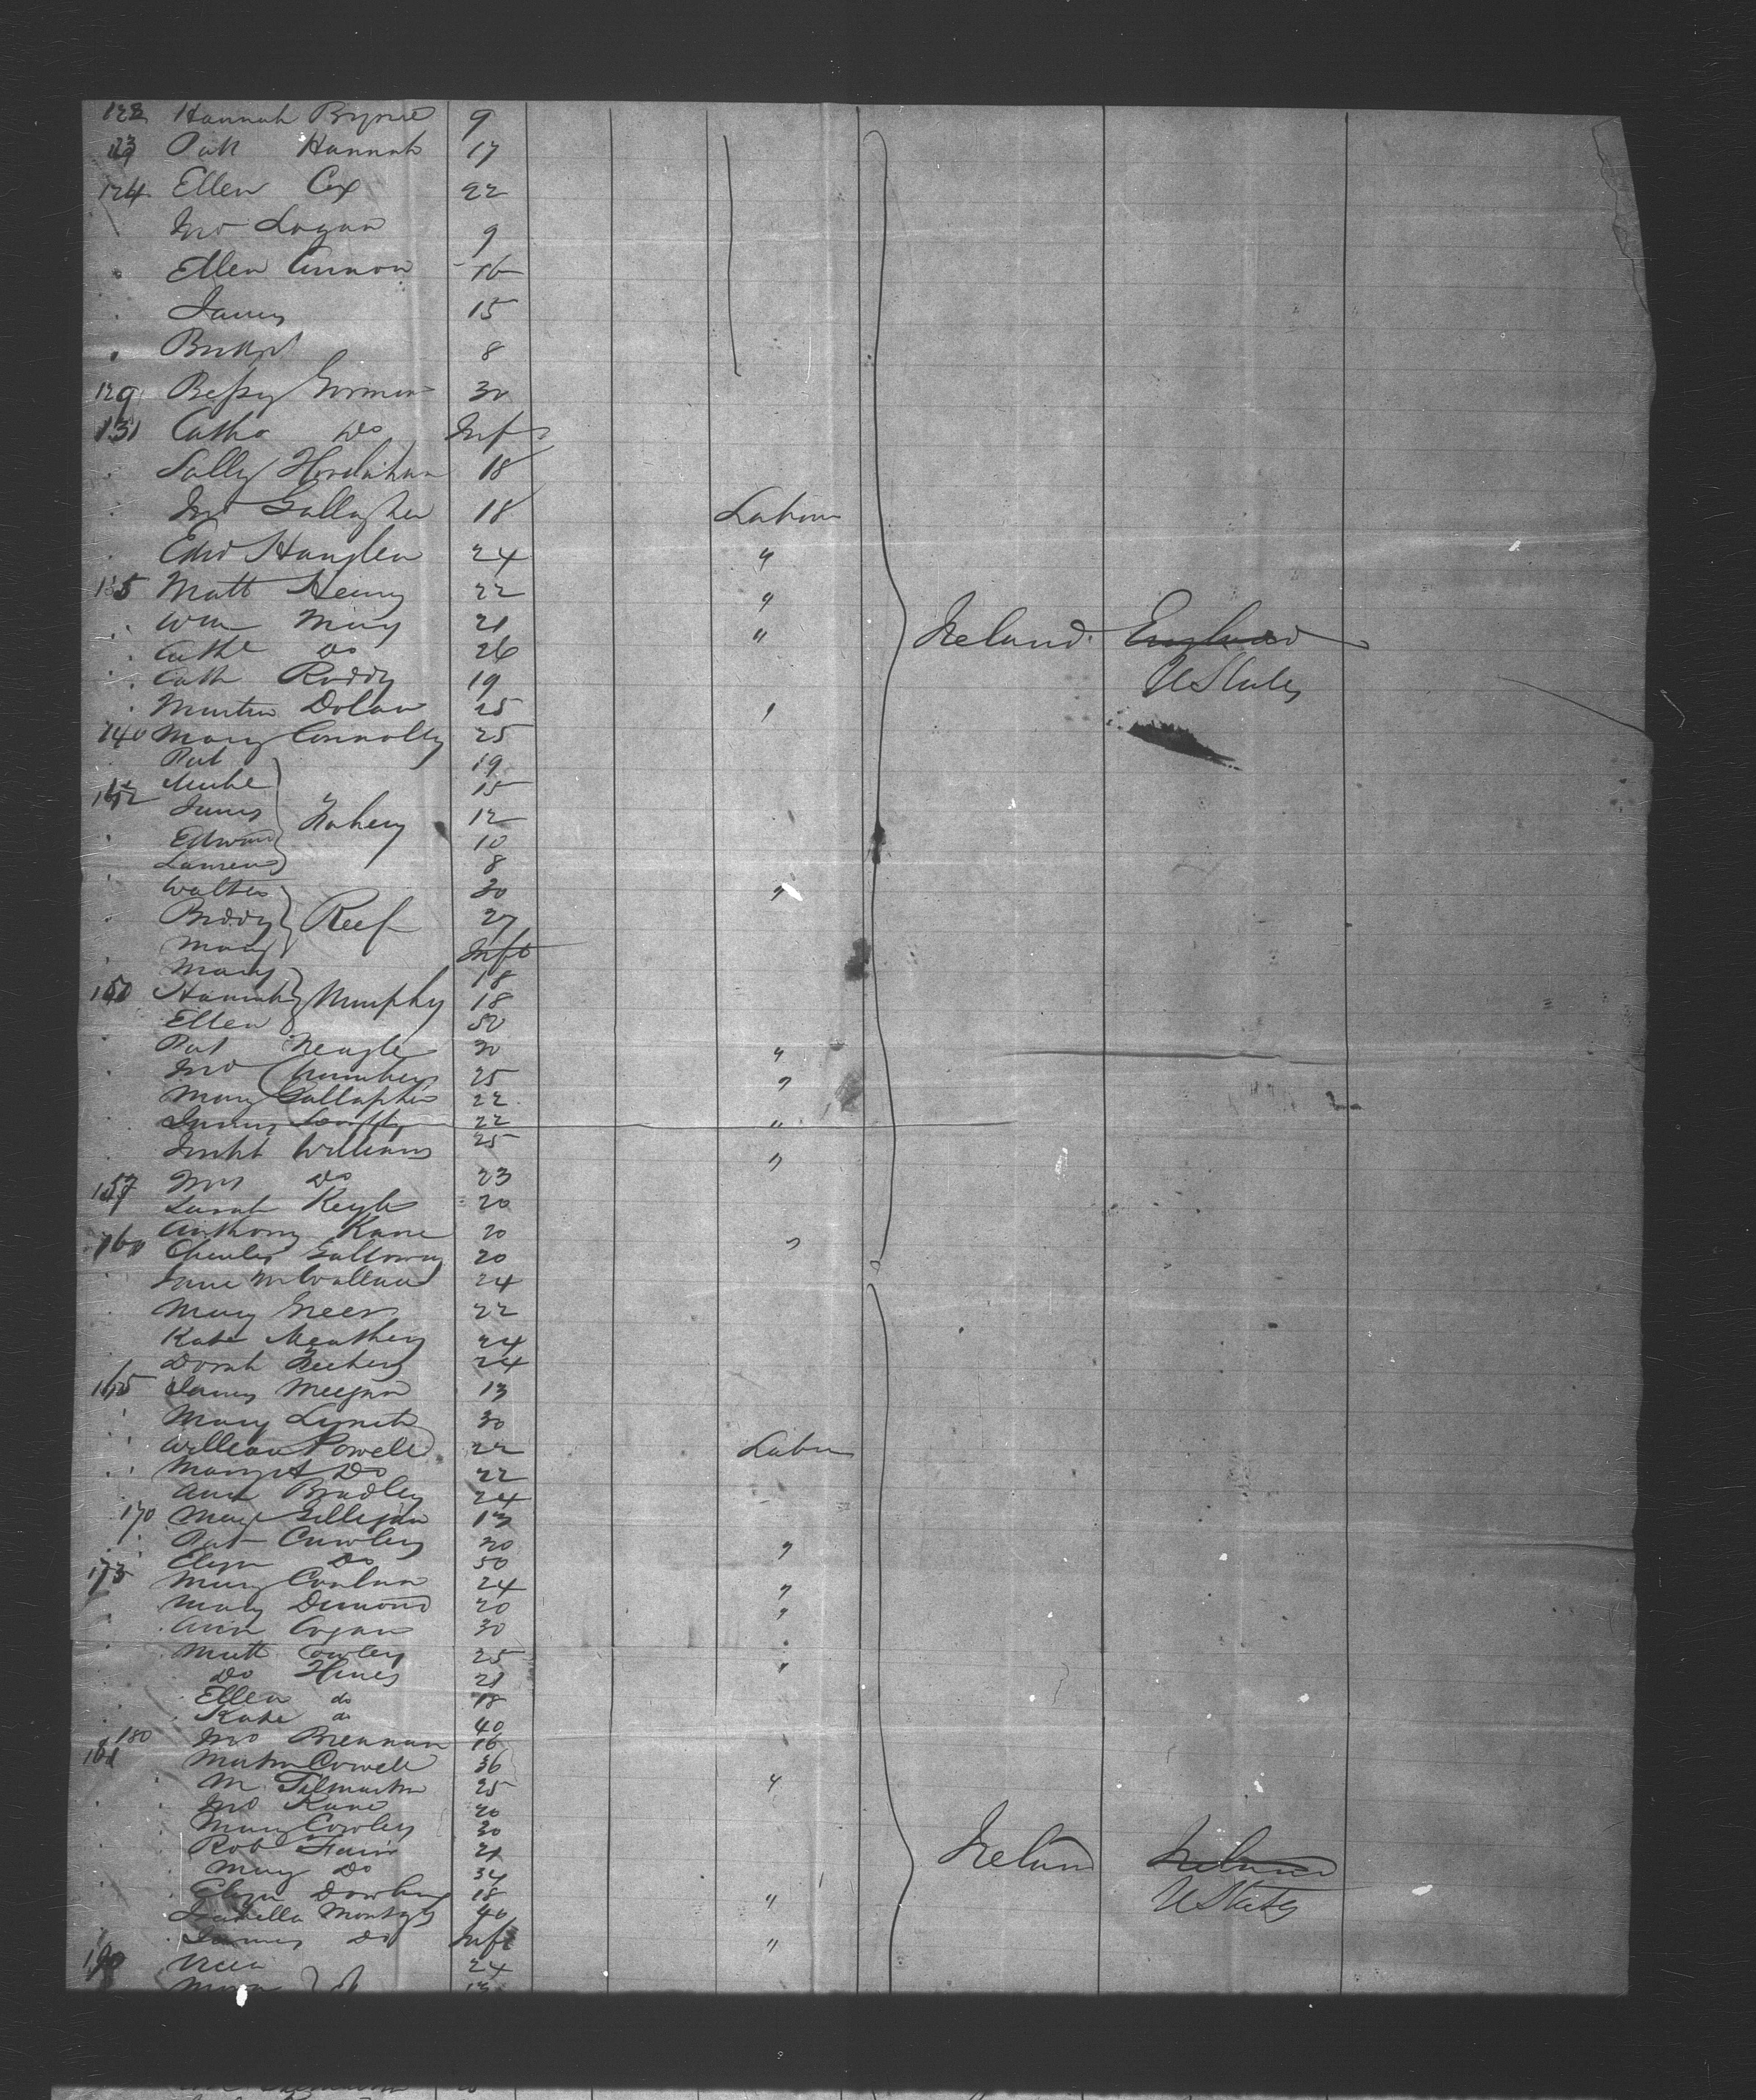 122 Hannah Byrne 9
123 Patk Hannah 17
124 Ellen Cox 22
Jno Logan 9
Ellen Cannon 16
James 15
Bridgt 8
129 Bessy Gorman 30
131 Cathe Do Inft
Sally 18
Jno Gallagher 18 Labour
Edwd Hanglen 24 "
135 Matt Henry 22 "
Wm May 21 "
Cathe Do 26
Cath Ruddy 19
Ireland England
U States
Martin Dolan 25 "
140 Mary Connolly 25
Pat 19
Michl 15
142 James Fahey 12
Edward 10
Lawrence 8
Walter 30 "
Biddy Reef 27
Mary Inft
Mary 18
150 Hannah Murphy 18
Ellen 50
Pat Neagle 30 "
Jno Chambers 25 "
Mary Gallagher 22
James 22 "
Williams 25 "
157 Mrs Do 23
Sarah Keyle 20
Anthony Kane 20 "
160 Charles Galloway 20
Jane 24
Mary Greer 22
Kate 24
Dorah 24
165 James Meegan 13
Mary Lynch 30
William Powell 22 Labour
Margt Do 22
Ann Bradley 24
170 Mary Gilligan 13
Pat Crowley 20 "
Eliza Do 50
173 Mary Conlan 24 "
Mary Dimond 20 "
Ann Cogan 30
Matt Cowley 25
Do Hines 21 "
Ellen do 18
Kate do 40
180 Jno Brennan 16
181 Martin Cowell 36
M. Gilmartin 25 "
Jno Kane 20
Mary Cowley 30
Rob 21
Mary Do 34
Ireland Ireland
U States
Eliza Dowling 18 "
Isabella Montgy 40
James Do Inft "
190 24